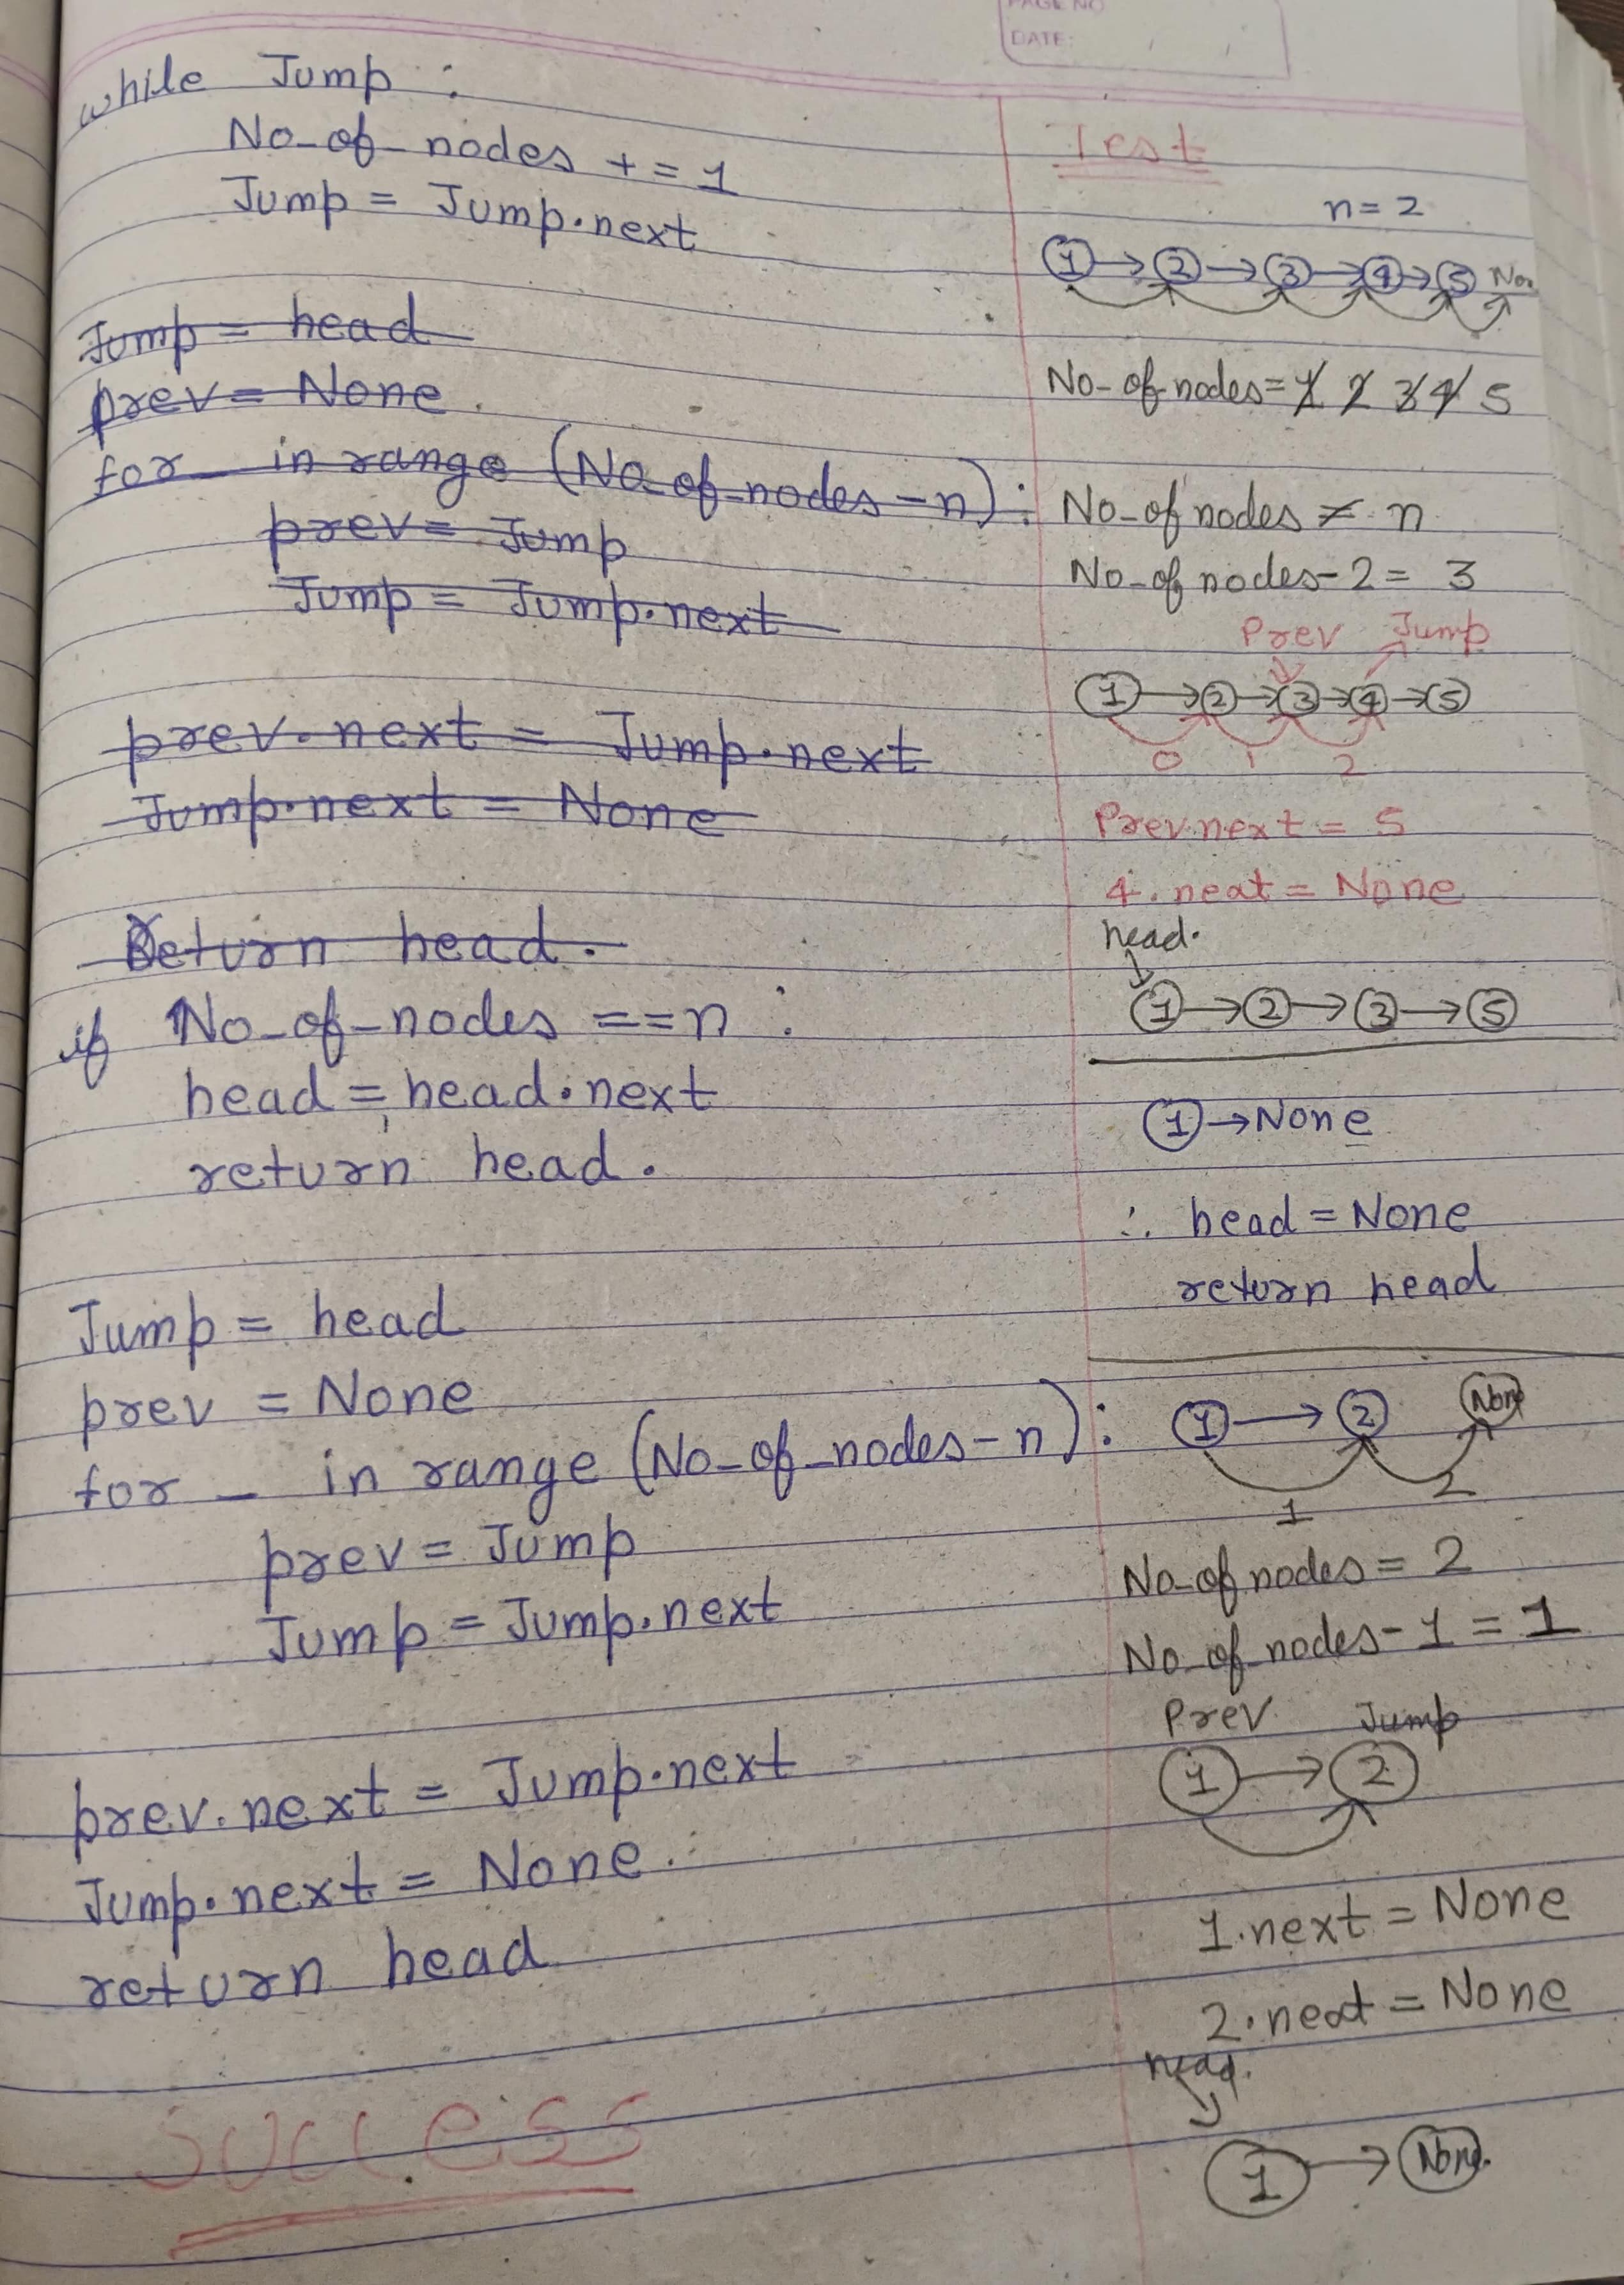 PAGE NO
DATE:
while Jump :
No_of_nodes += 1
Jump = Jump.next
Jump = head
prev = None
for _ in range (No_of_nodes - n) :
prev = Jump
Jump = Jump.next
prev.next = Jump.next
Jump.next = None
Return head.
if No_of_nodes == n :
head = head.next
return head.
Jump = head
prev = None
for _ in range (No_of_nodes - n) :
prev = Jump
Jump = Jump.next
prev.next = Jump.next
Jump.next = None
return head
success
Test
n = 2
1 → 2 → 3 → 4 → 5 Non
No_of_nodes = 1 2 3 4 5
No_of nodes ≠ n
No_of nodes - 2 = 3
Prev Jump
1 → 2 → 3 → 4 → 5
0 1 2
Prev.next = 5
4.next = None
head.
1 → 2 → 3 → 5
1 → None
∴ head = None
return head
1 → 2 None
1 2
No_of nodes = 2
No_of_nodes - 1 = 1
Prev Jump
1 → 2
1.next = None
2.next = None
head.
1 → None.